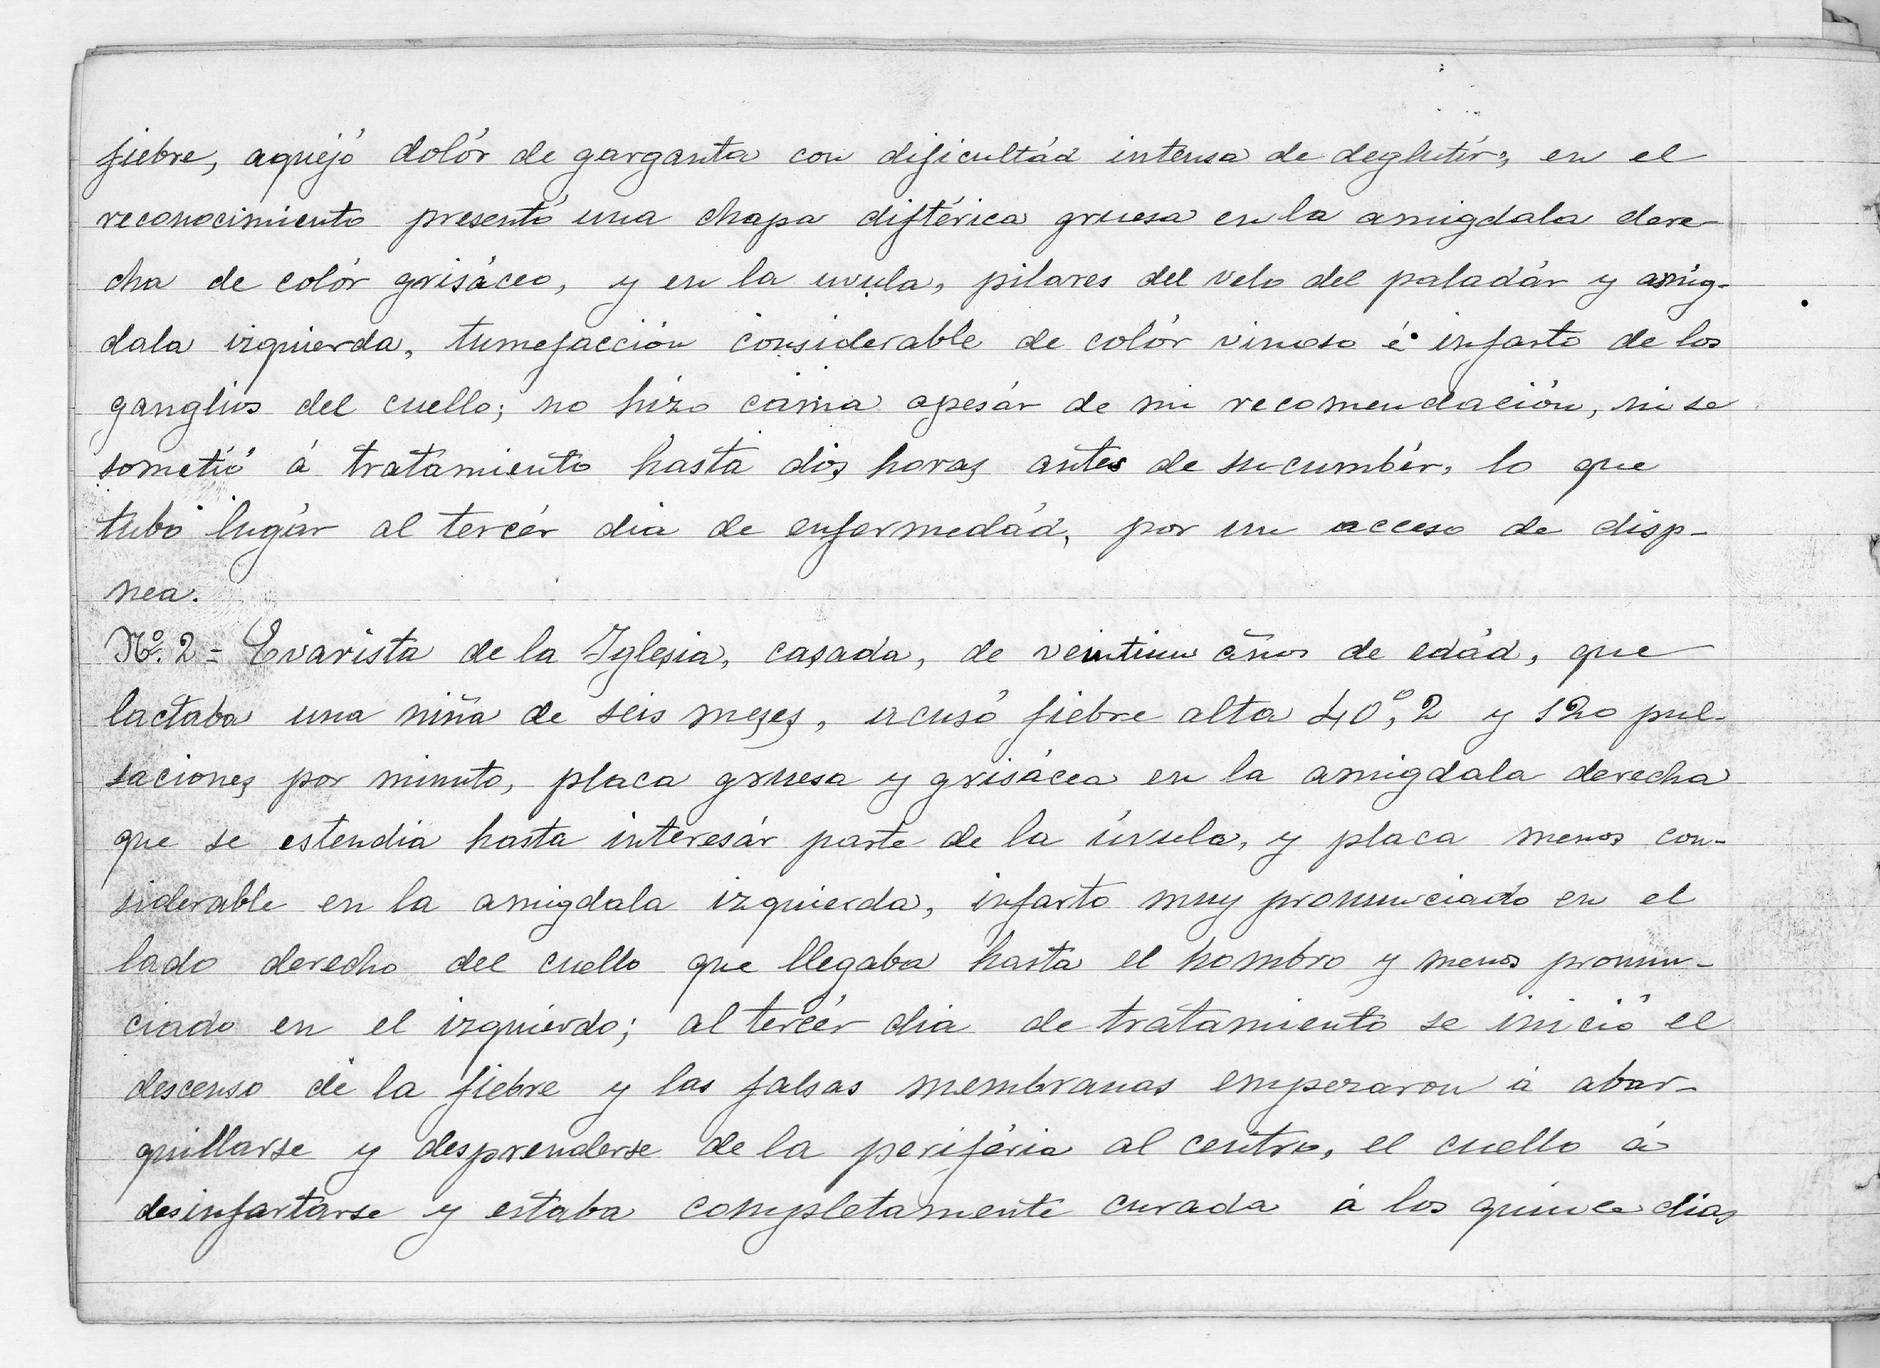 fiebre, aquejó dolór de garganta con dificultád intensa de deglutír; en el
reconocimiento presentó una chapa diftérica gruesa en la amigdala dere-
cha de colór grisáceo, y en la uvula, pilares del velo del paladár y amíg-
dala izquierda, tumefacción considerable de colór vinoso é infarto de los
ganglios del cuello; no hizo cama apesár de mi recomendación, ni se
sometió á tratamiento hasta dos horas antes de sucumbír, lo que
tubo lugár al tercér dia de enfermedád, por un acceso de disp-
nea.
Nº. 2 = Evarista de la Iglesia, casada, de veintiun años de edád, que
lactaba una niña de seis meses, acusó fiebre alta 40º,2 y 120 pul-
saciones por minuto, placa gruesa y grisácea en la amigdala derecha
que se estendia hasta interesár parte de la úvula, y placa menos con-
siderable en la amigdala izquierda, infarto muy pronunciado en el
lado derecho del cuello que llegaba hasta el hombro y menos pronun-
ciado en el izquierdo; al tercér dia de tratamiento se inició el
descenso de la fiebre y las falsas membranas empezaron á abar-
quillarse y desprenderse de la periféria al centro, el cuello á
desinfartarse y estaba completamente curada á los quince dias